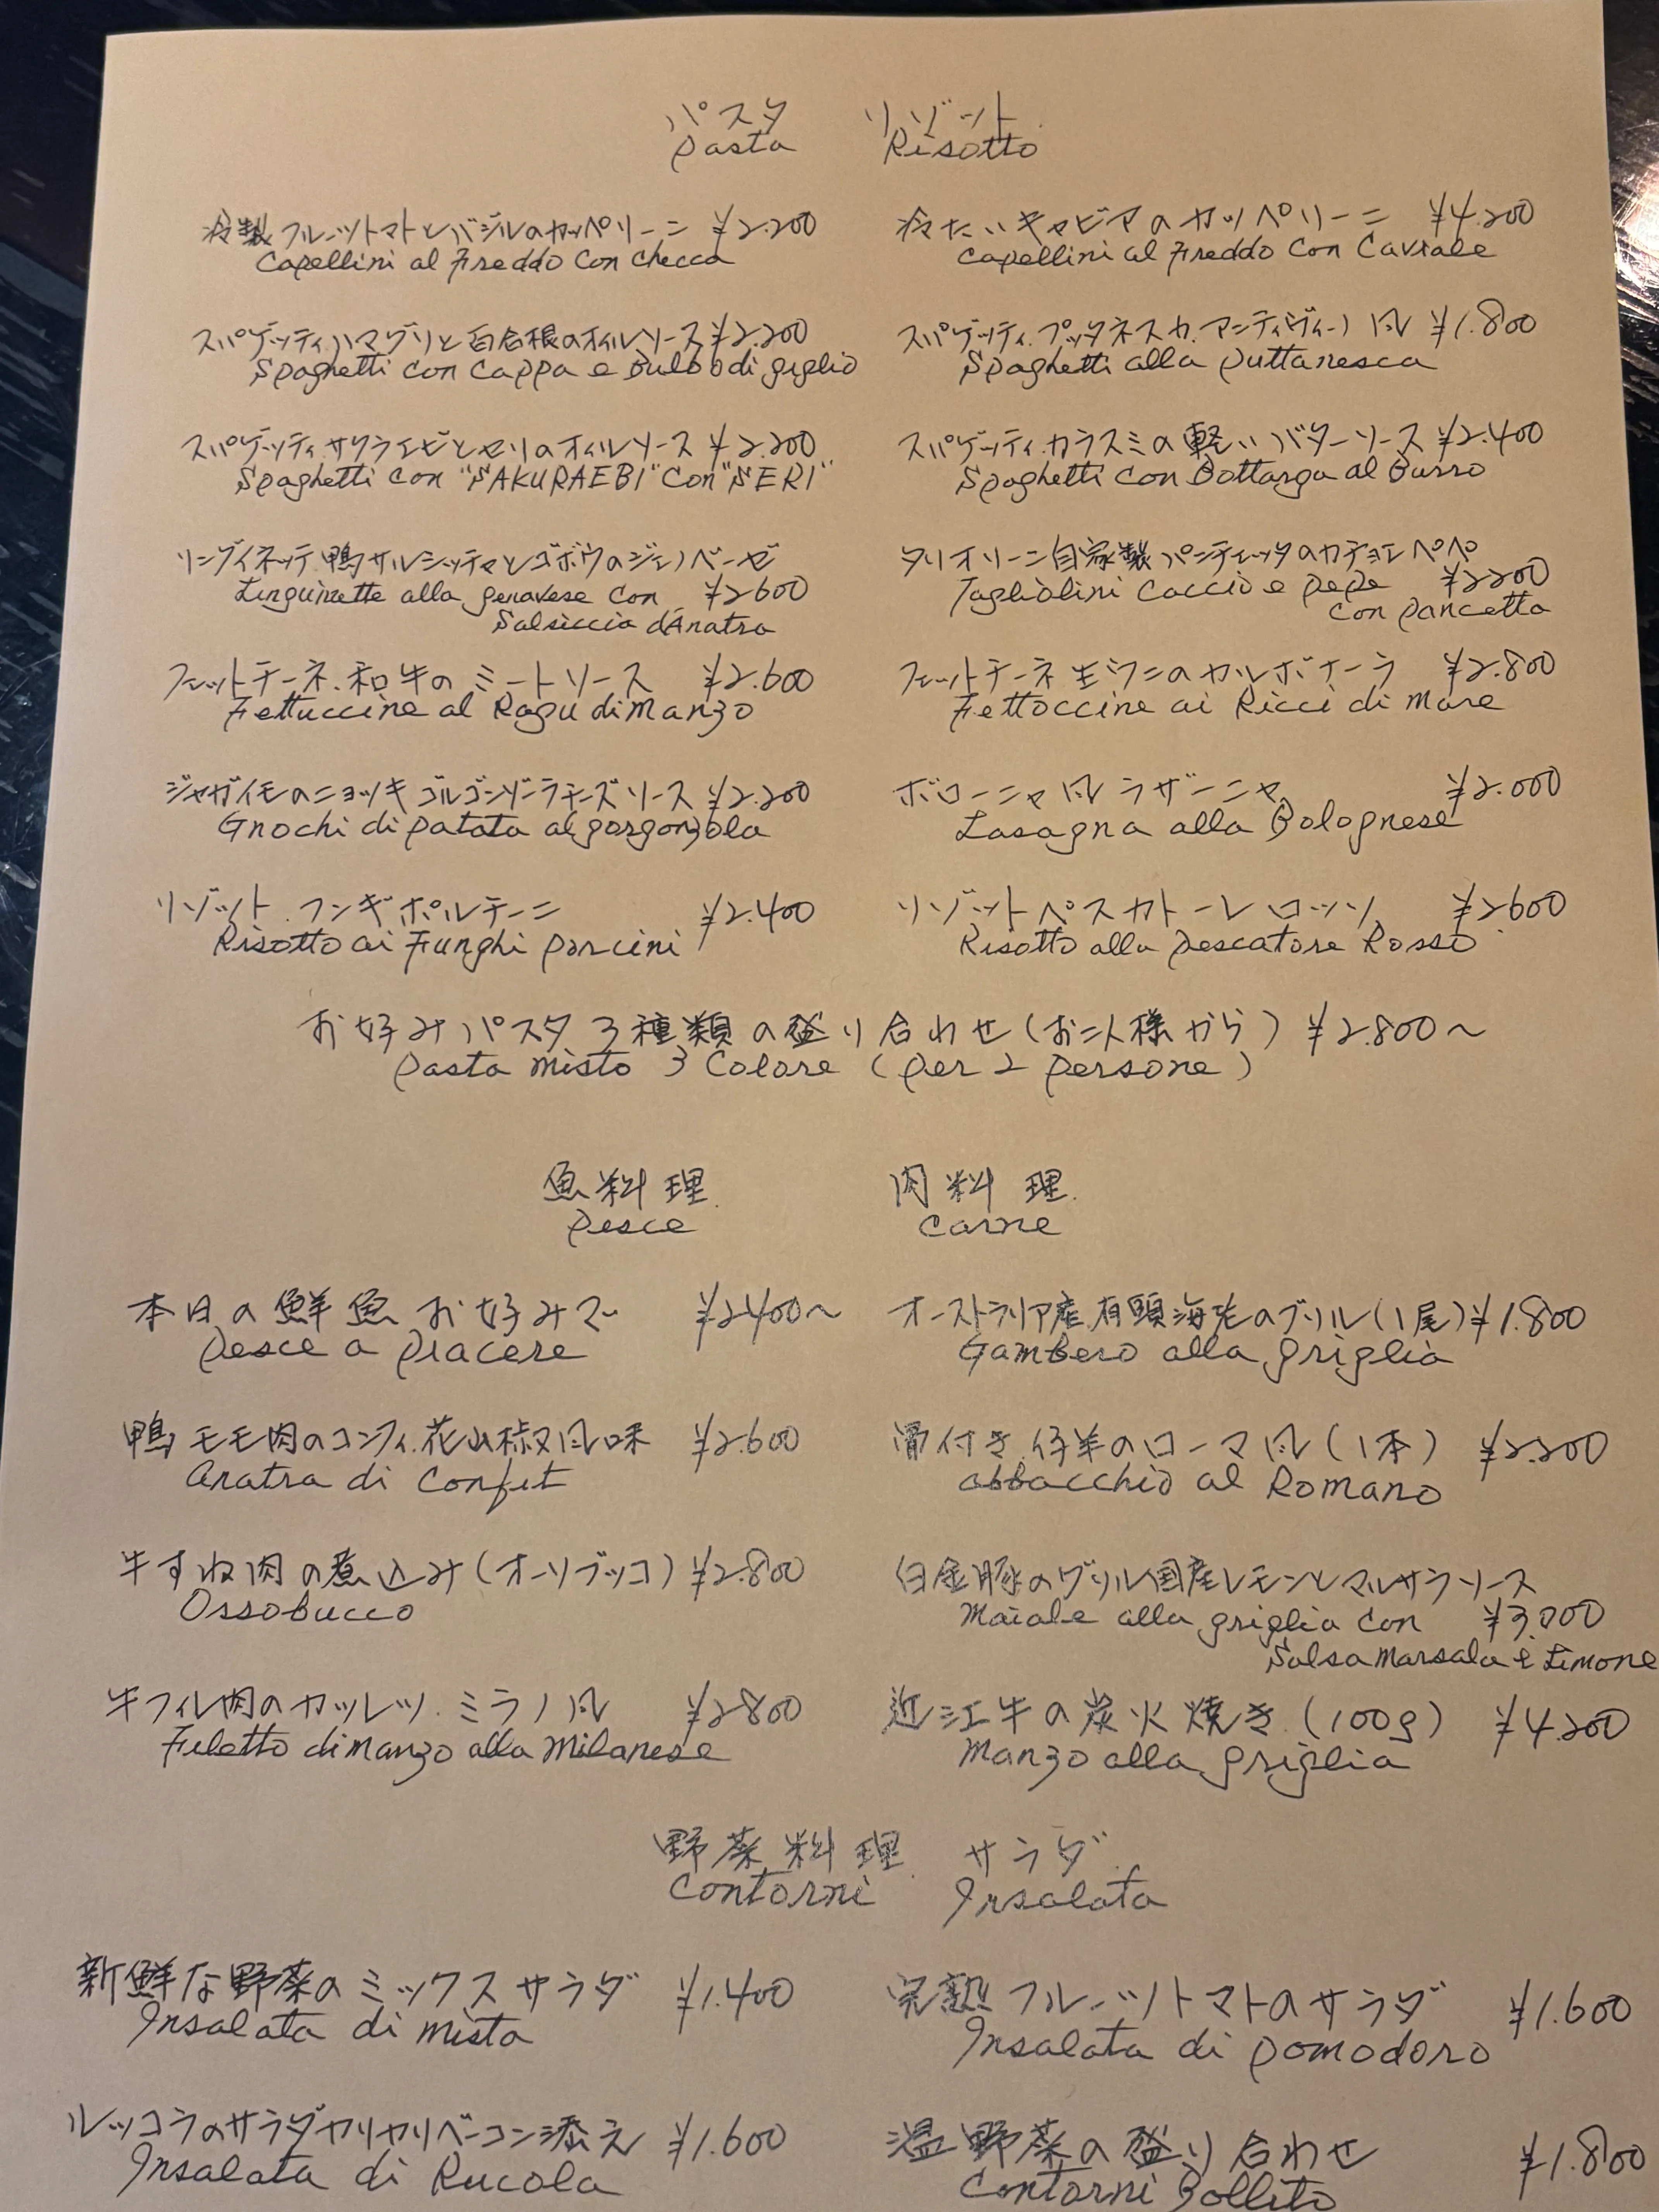 パスタ リゾット
Pasta Risotto
冷製フルーツトマトとバジルのカッペリーニ ¥2.200
Capellini al Freddo Con checca
冷たいキャビアのカッペリーニ ¥4.200
Capellini al Freddo Con Caviale
スパゲッティ,ハマグリと百合根のオイルソース ¥2.200
Spaghetti con Cappa e Bulbo di giglio
スパゲッティ.プッタネスカ.アンティヴィーノ風 ¥1.800
Spaghetti alla Puttanesca
スパゲッティ.サクラエビとセリのオイルソース ¥2.200
Spaghetti con "SAKURAEBI" Con "SERI"
スパゲッティ.カラスミの軽いバターソース ¥2.400
Spaghetti con Bottarga al Burro
リングイネッテ.鴨サルシッチャとゴボウのジェノベーゼ
Linguinette alla genavese con ¥2600
Salsiccia d'Anatra
タリオリーニ自家製パンチェッタのカチョエペペ
Tagliolini Caccio e pepe ¥2200
con pancetta
フェットチーネ.和牛のミートソース ¥2.600
Fettuccine al Ragu di Manzo
フェットチーネ生ウニのカルボナーラ ¥2.800
Fettoccine ai Ricci di Mare
ジャガイモのニョッキゴルゴンゾーラチーズソース ¥2.200
Gnochi di patata al gorgonzola
ボローニャ風ラザーニャ ¥2.000
Lasagna alla Bolognese
リゾット.フンギポルチーニ ¥2.400
Risotto ai Funghi porcini
リゾットペスカトーレロッソ ¥2600
Risotto alla Pescatore Rosso
お好みパスタ3種類の盛り合わせ(お二人様から) ¥2.800〜
Pasta Misto 3 Colore (per 2 persone)
魚料理 肉料理
Pesce Carne
本日の鮮魚お好みで ¥2400〜
Pesce a Piacere
オーストラリア産.有頭海老のグリル(1尾) ¥1.800
Gambero alla griglia
鴨モモ肉のコンフィ.花山椒風味 ¥2.600
Anatra di Confit
骨付き仔羊のローマ風(1本) ¥2.200
abbacchio al Romano
牛すね肉の煮込み(オーソブッコ) ¥2.800
Ossobucco
白金豚のグリル国産レモンとマルサラソース
Maiale alla griglia con ¥3.000
Salsa Marsala e Limone
牛フィレ肉のカツレツ.ミラノ風 ¥2800
Filetto di Manzo alla Milanese
近江牛の炭火焼き(100g) ¥4.200
Manzo alla griglia
野菜料理 サラダ
Contorni Insalata
新鮮な野菜のミックスサラダ ¥1.400
Insalata di Mista
完熟フルーツトマトのサラダ ¥1.600
Insalata di Pomodoro
ルッコラのサラダカリカリベーコン添え ¥1.600
Insalata di Rucola
温野菜の盛り合わせ ¥1.800
Contorni Bollito